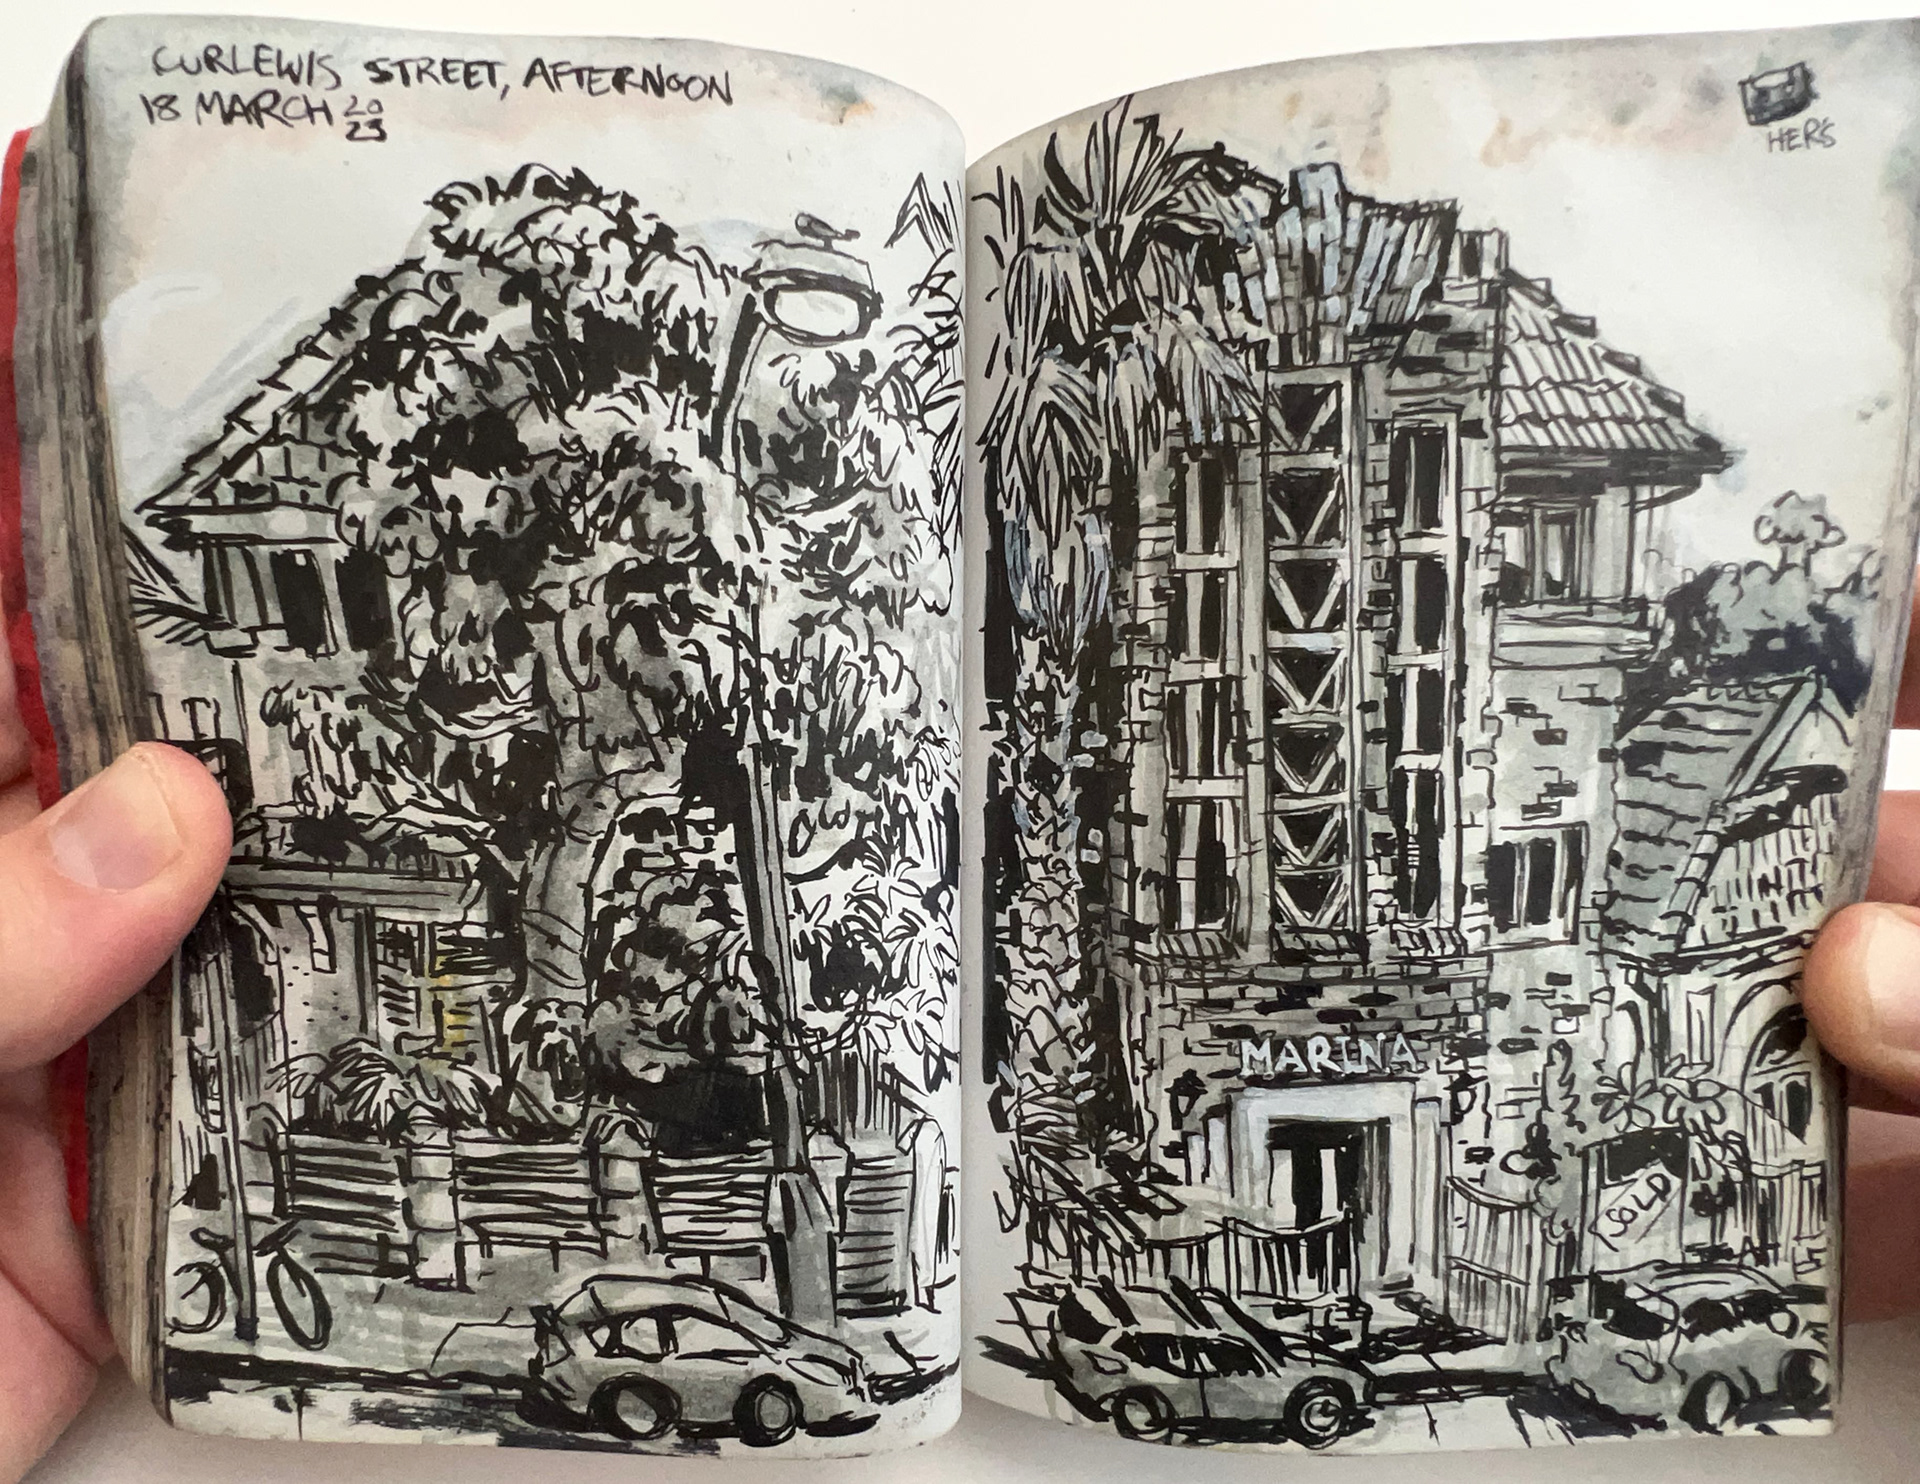 CURLEWIS STREET, AFTERNOON
18 MARCH 20
23
HERS
MARINA
SOLD